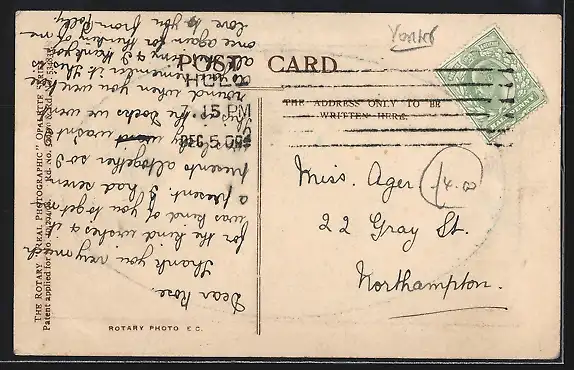 Yorks
POST CARD
HULL
7.15 PM
DEC 5 09
THE ADDRESS ONLY TO BE
WRITTEN HERE.
Miss. Ager
14.00
22 Gray St.
Northampton.
Dear Rose.
Thank you very much
for the kind wishes & it
was kind of you to get me
a present. I had seven
presents altogether so I
wasn't
the Docks we went
round when you were here
remember it
& I thank you
once again for thinking of me
love to you from Polly
THE ROTARY "REAL PHOTOGRAPHIC" OPALETTE SERIES
Patent applied for No.
Rd. No.
ROTARY PHOTO E.C.